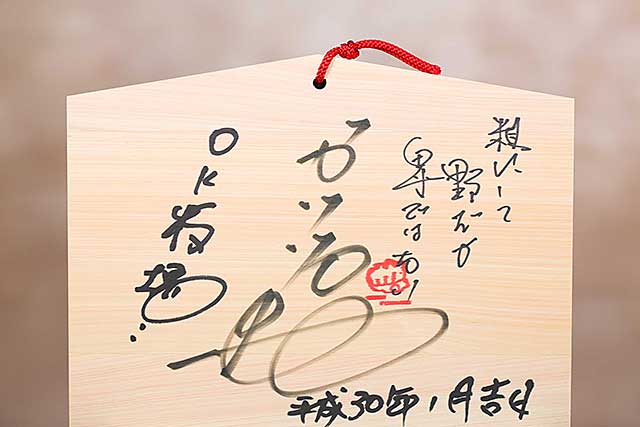 粗にして
野だが
卑ではない
ガッツ石松
OK牧場
平成30年1月吉日